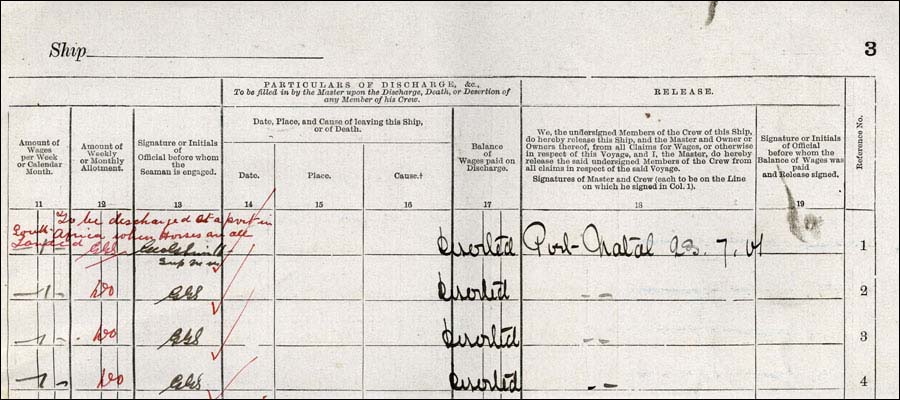 Ship
3
PARTICULARS OF DISCHARGE, &c.,
To be filled in by the Master upon the Discharge, Death, or Desertion of
any Member of his Crew.
RELEASE.
Amount of
Wages
per Week
or Calendar
Month.
Amount of
Weekly
or Monthly
Allotment.
Signature or Initials
of
Official before whom
the
Seaman is engaged.
Date, Place, and Cause of leaving this Ship,
or of Death.
Date.
Place.
Cause.†
Balance
of
Wages paid on
Discharge.
We, the undersigned Members of the Crew of this Ship,
do hereby release this Ship, and the Master and Owner or
Owners thereof, from all Claims for Wages, or otherwise
in respect of this Voyage, and I, the Master, do hereby
release the said undersigned Members of the Crew from
all claims in respect of the said Voyage.
Signatures of Master and Crew (each to be on the Line
on which he signed in Col. 1).
Signature or Initials
of Official
before whom the
Balance of Wages was
paid
and Release signed.
Reference No.
11 12 13 14 15 16 17 18 19
To be discharged at a port in
South Africa when Horses are all
Landed
GGS
Deserted Port Natal 23.7.01 1
Do GGS Deserted 2
Do GGS Deserted 3
Do GGS Deserted 4